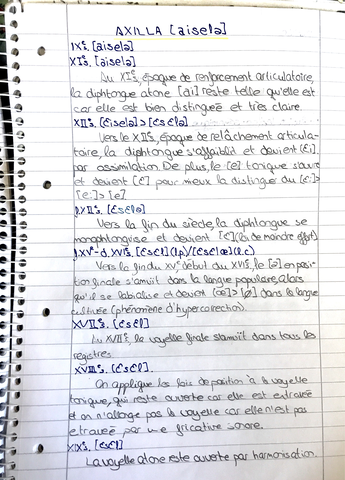 AXILLA [aisęlə]
IXᵉs. [aisęlə]
XIᵉs. [aisęlə]
Au XIᵉs, époque de renforcement articulatoire,
la diphtongue atone [ai] reste telle qu'elle est
car elle est bien distinguée et très claire.
XIIᵉs. [ɛisęlə] > [ɛsɛlə]
Vers le XIIᵉs, époque de relâchement articula-
toire, la diphtongue s'affaiblit et devient [ɛi]
par assimilation. De plus, le [e] tonique s'ouvre
et devient [ɛ] pour mieux la distinguer du [e:] >
[e:] > [e]
f.XIIᵉs. [ɛsɛlə]
Vers la fin du siècle, la diphtongue se
monophtonguise et devient [ɛ] (loi de moindre effort)
f.XVᵉ-d.XVIᵉs. [ɛsɛl] (l.p) / [ɛsɛlœ] (l.c)
Vers la fin du XVᵉ début du XVIᵉs, le [ə] en posi-
tion finale s'amuït dans la langue populaire, alors
qu'il se labialise et devient [œ] > [ø] dans la langue
cultivée (phénomène d'hypercorrection).
XVIIᵉs. [ɛsɛl]
Au XVIIᵉs, la voyelle finale s'amuït dans tous les
registres.
XVIIIᵉs. [ɛsɛl].
On applique les lois de position à la voyelle
tonique, qui reste ouverte car elle est entravée
et on n'allonge pas la voyelle car elle n'est pas
entravée par une fricative sonore.
XIXᵉs. [ɛsɛl]
La voyelle atone reste ouverte par harmonisation.